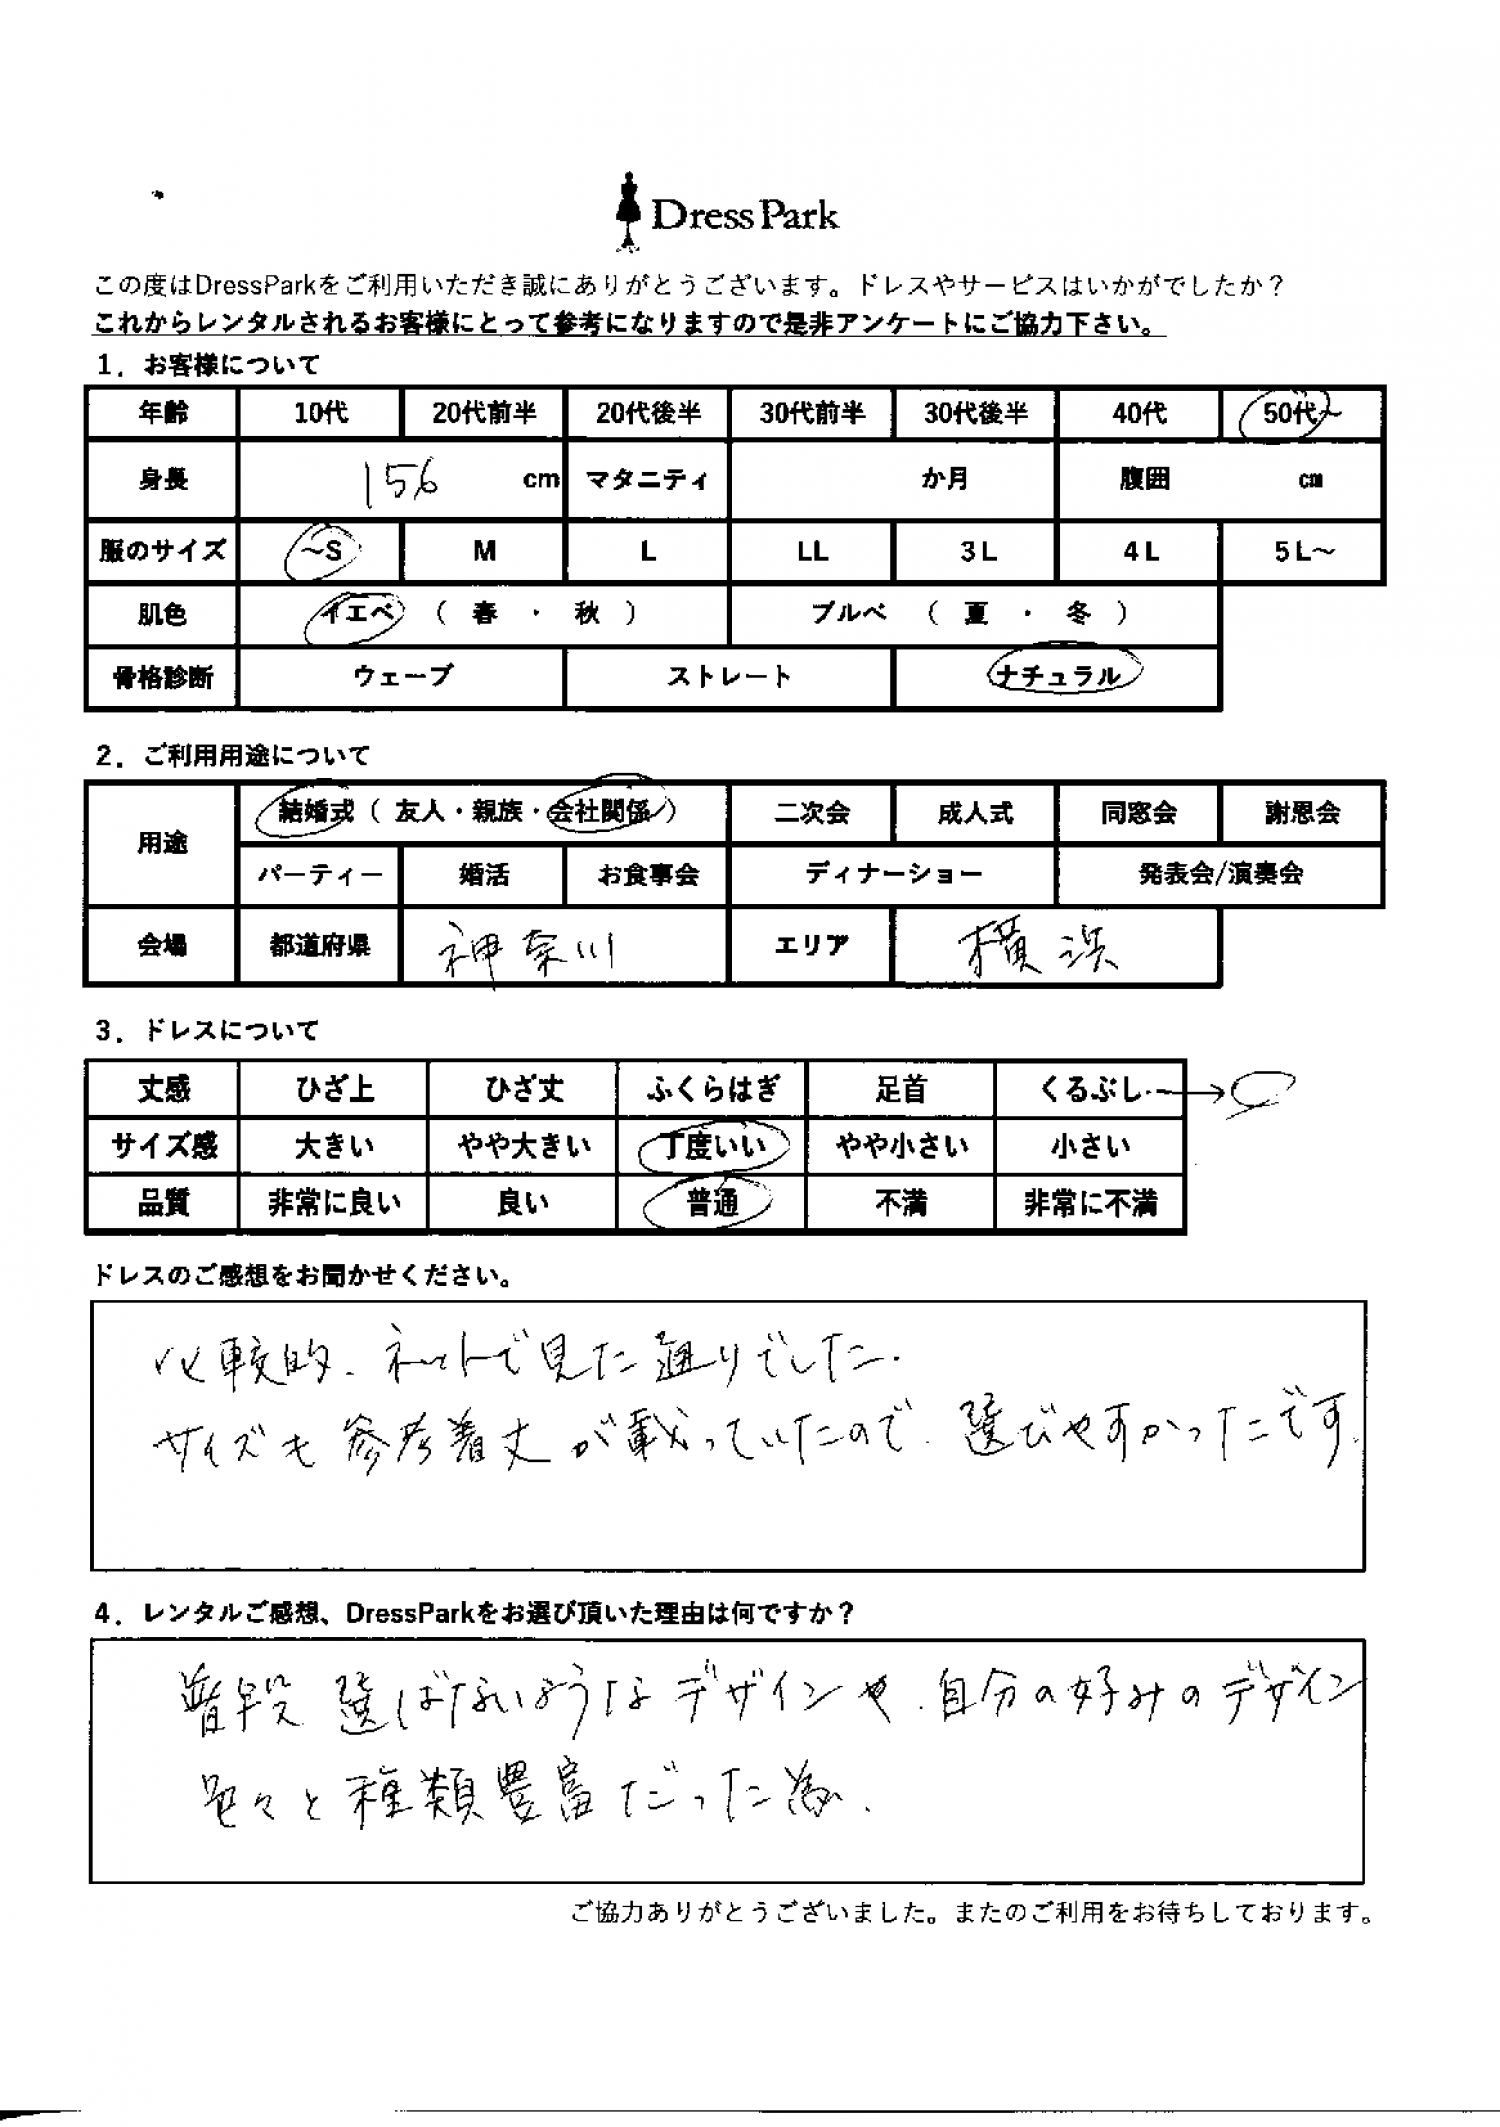 DressPark
この度はDressParkをご利用いただき誠にありがとうございます。ドレスやサービスはいかがでしたか？
これからレンタルされるお客様にとって参考になりますので是非アンケートにご協力下さい。
1．お客様について
年齢 10代 20代前半 20代後半 30代前半 30代後半 40代 50代～
身長 156 cm マタニティ か月 腹囲 cm
服のサイズ ～S M L LL 3L 4L 5L～
肌色 イエベ（ 春 ・ 秋 ） ブルベ（ 夏 ・ 冬 ）
骨格診断 ウェーブ ストレート ナチュラル
2．ご利用用途について
用途 結婚式（ 友人・親族・会社関係 ） 二次会 成人式 同窓会 謝恩会
パーティー 婚活 お食事会 ディナーショー 発表会/演奏会
会場 都道府県 神奈川 エリア 横浜
3．ドレスについて
丈感 ひざ上 ひざ丈 ふくらはぎ 足首 くるぶし
サイズ感 大きい やや大きい 丁度いい やや小さい 小さい
品質 非常に良い 良い 普通 不満 非常に不満
ドレスのご感想をお聞かせください。
比較的、ネットで見た通りでした。
サイズも参考着丈が載っていたので、選びやすかったです。
4．レンタルご感想、DressParkをお選び頂いた理由は何ですか？
普段選ばないようなデザインや、自分の好みのデザイン
色々と種類豊富だった為。
ご協力ありがとうございました。またのご利用をお待ちしております。